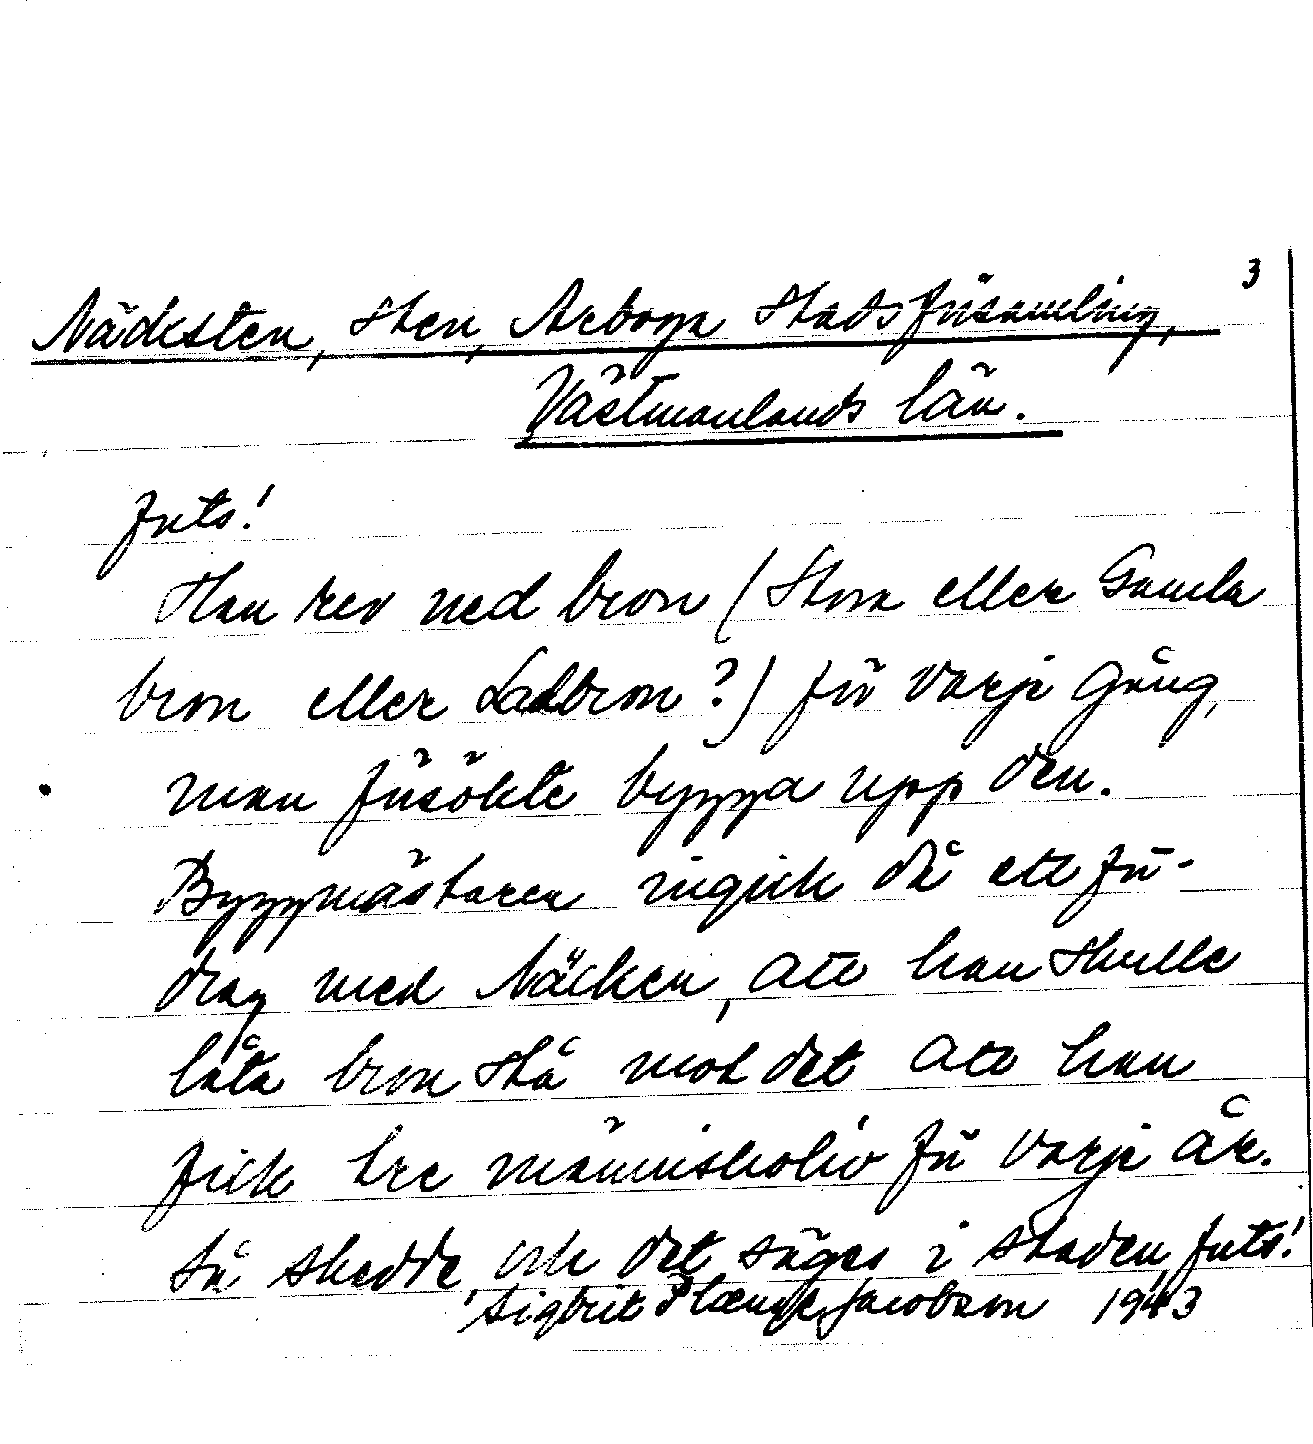 3
Näcksten, sten, Arboga stadsförsamling,
Västmanlands län.
forts!
Han rev ned bron (Stora eller Gamla
bron eller Ladbron?) för varje gång,
man försökte bygga upp den.
Byggmästaren ingick då ett för-
drag med Näcken, att han skulle
låta bron stå mot det att han
fick tre människoliv för varje år.
Så skedde, och det säges i staden, forts!
Sigbrit Plænge Jacobson 1943